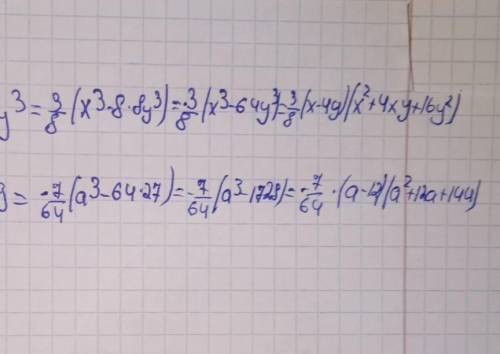 y³ = 3/8 (x³-8·8y³) = 3/8 (x³-64y³) = 3/8 (x-4y)(x²+4xy+16y²)
= -7/64 (a³-64·27) = -7/64 (a³-1728) = -7/64 · (a-12)(a²+12a+144)